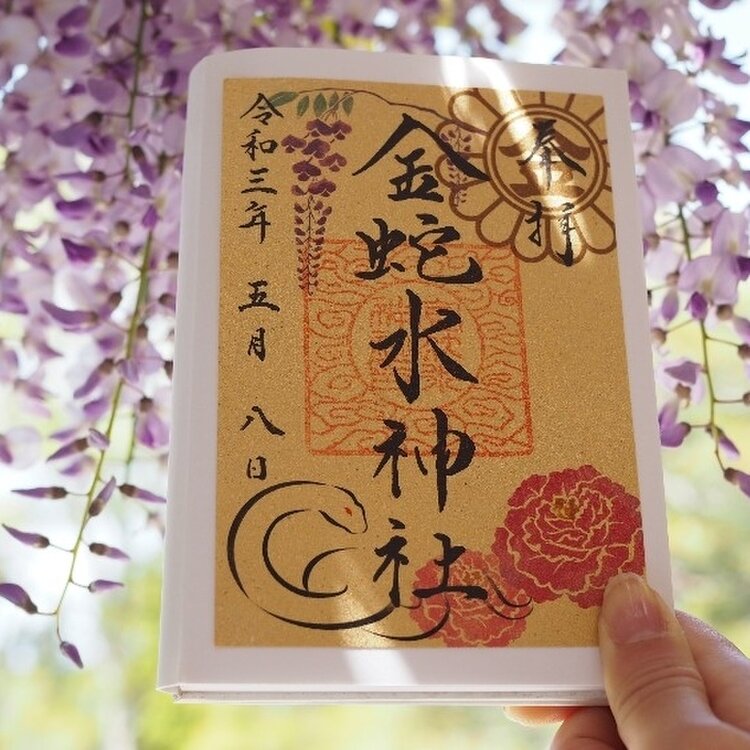 奉拝
金蛇水神社
令和三年 五月 八日